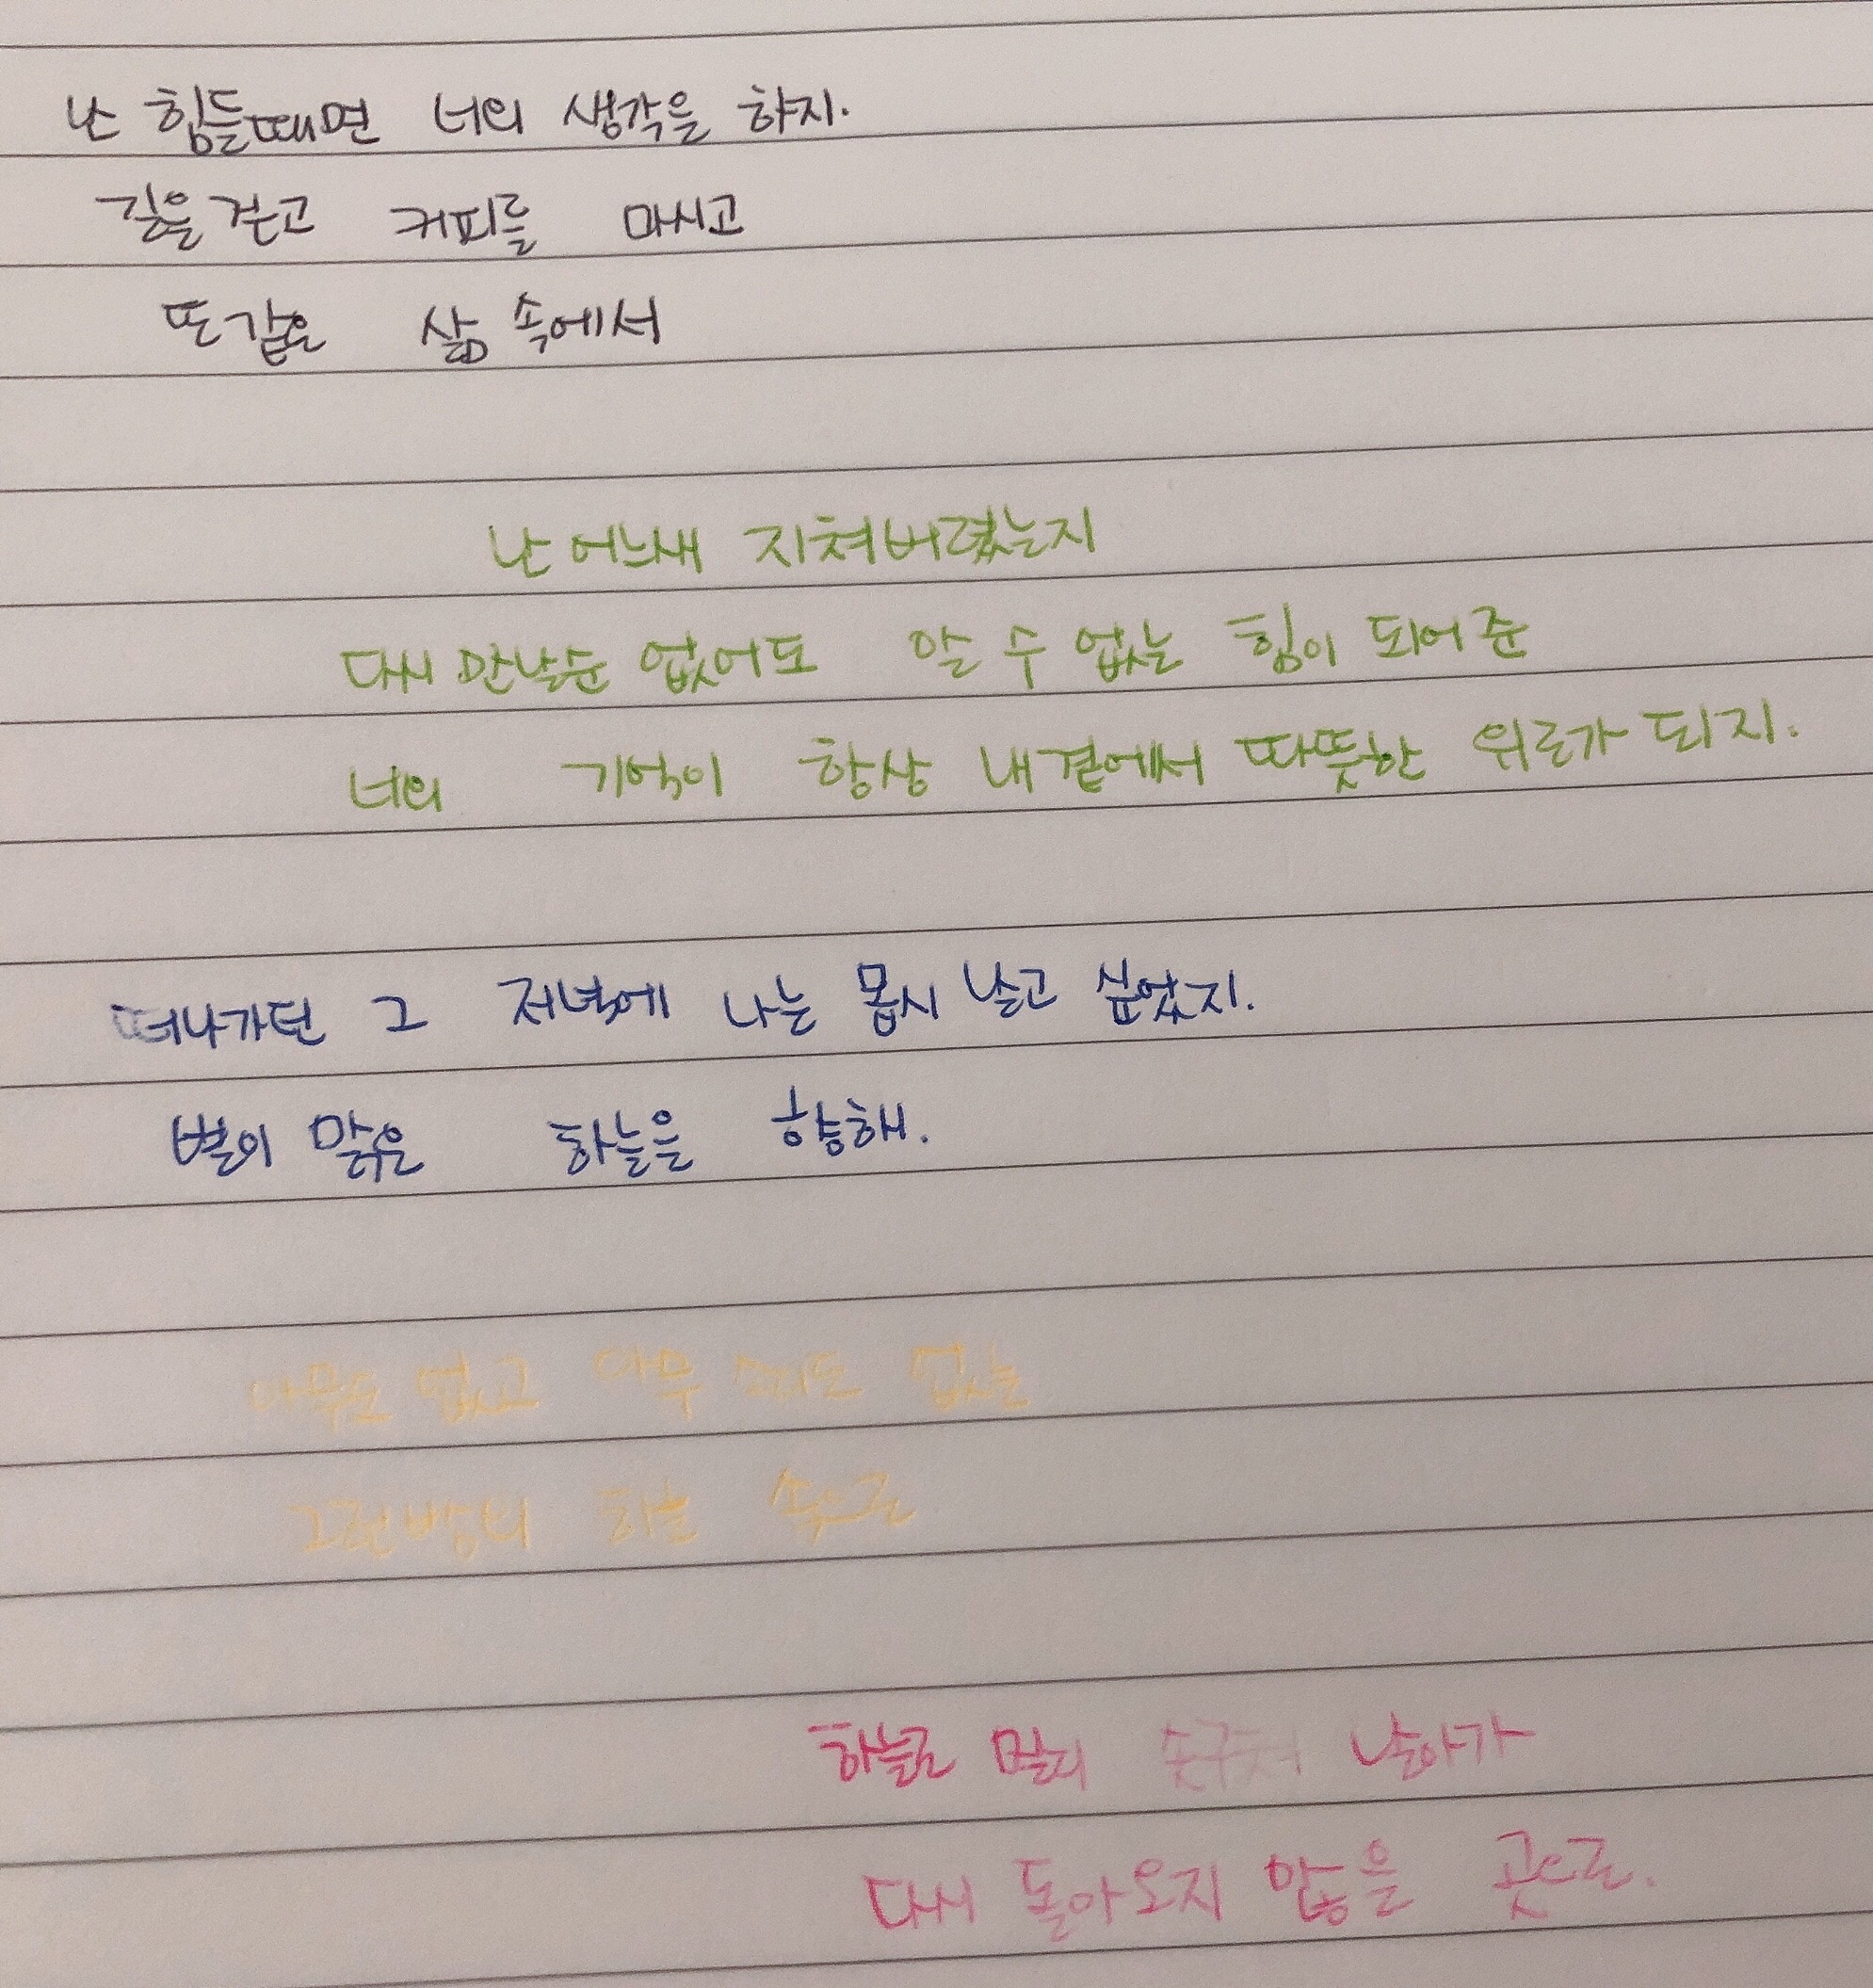 난 힘들때면 너의 생각을 하지.
길을 걷고 커피를 마시고
또 같은 삶 속에서
난 어느새 지쳐버렸는지
다시 만날순 없어도 알 수 없는 힘이 되어준
너의 기억이 항상 내곁에서 따뜻한 위로가 되지.
떠나가던 그 저녁에 나는 몹시 날고 싶었지.
별이 맑은 하늘을 향해.
아무도 없고 아무 소리도 없는
그런 밤의 하늘 속으로
하늘로 멀리 솟구쳐 날아가
다시 돌아오지 않을 곳으로.